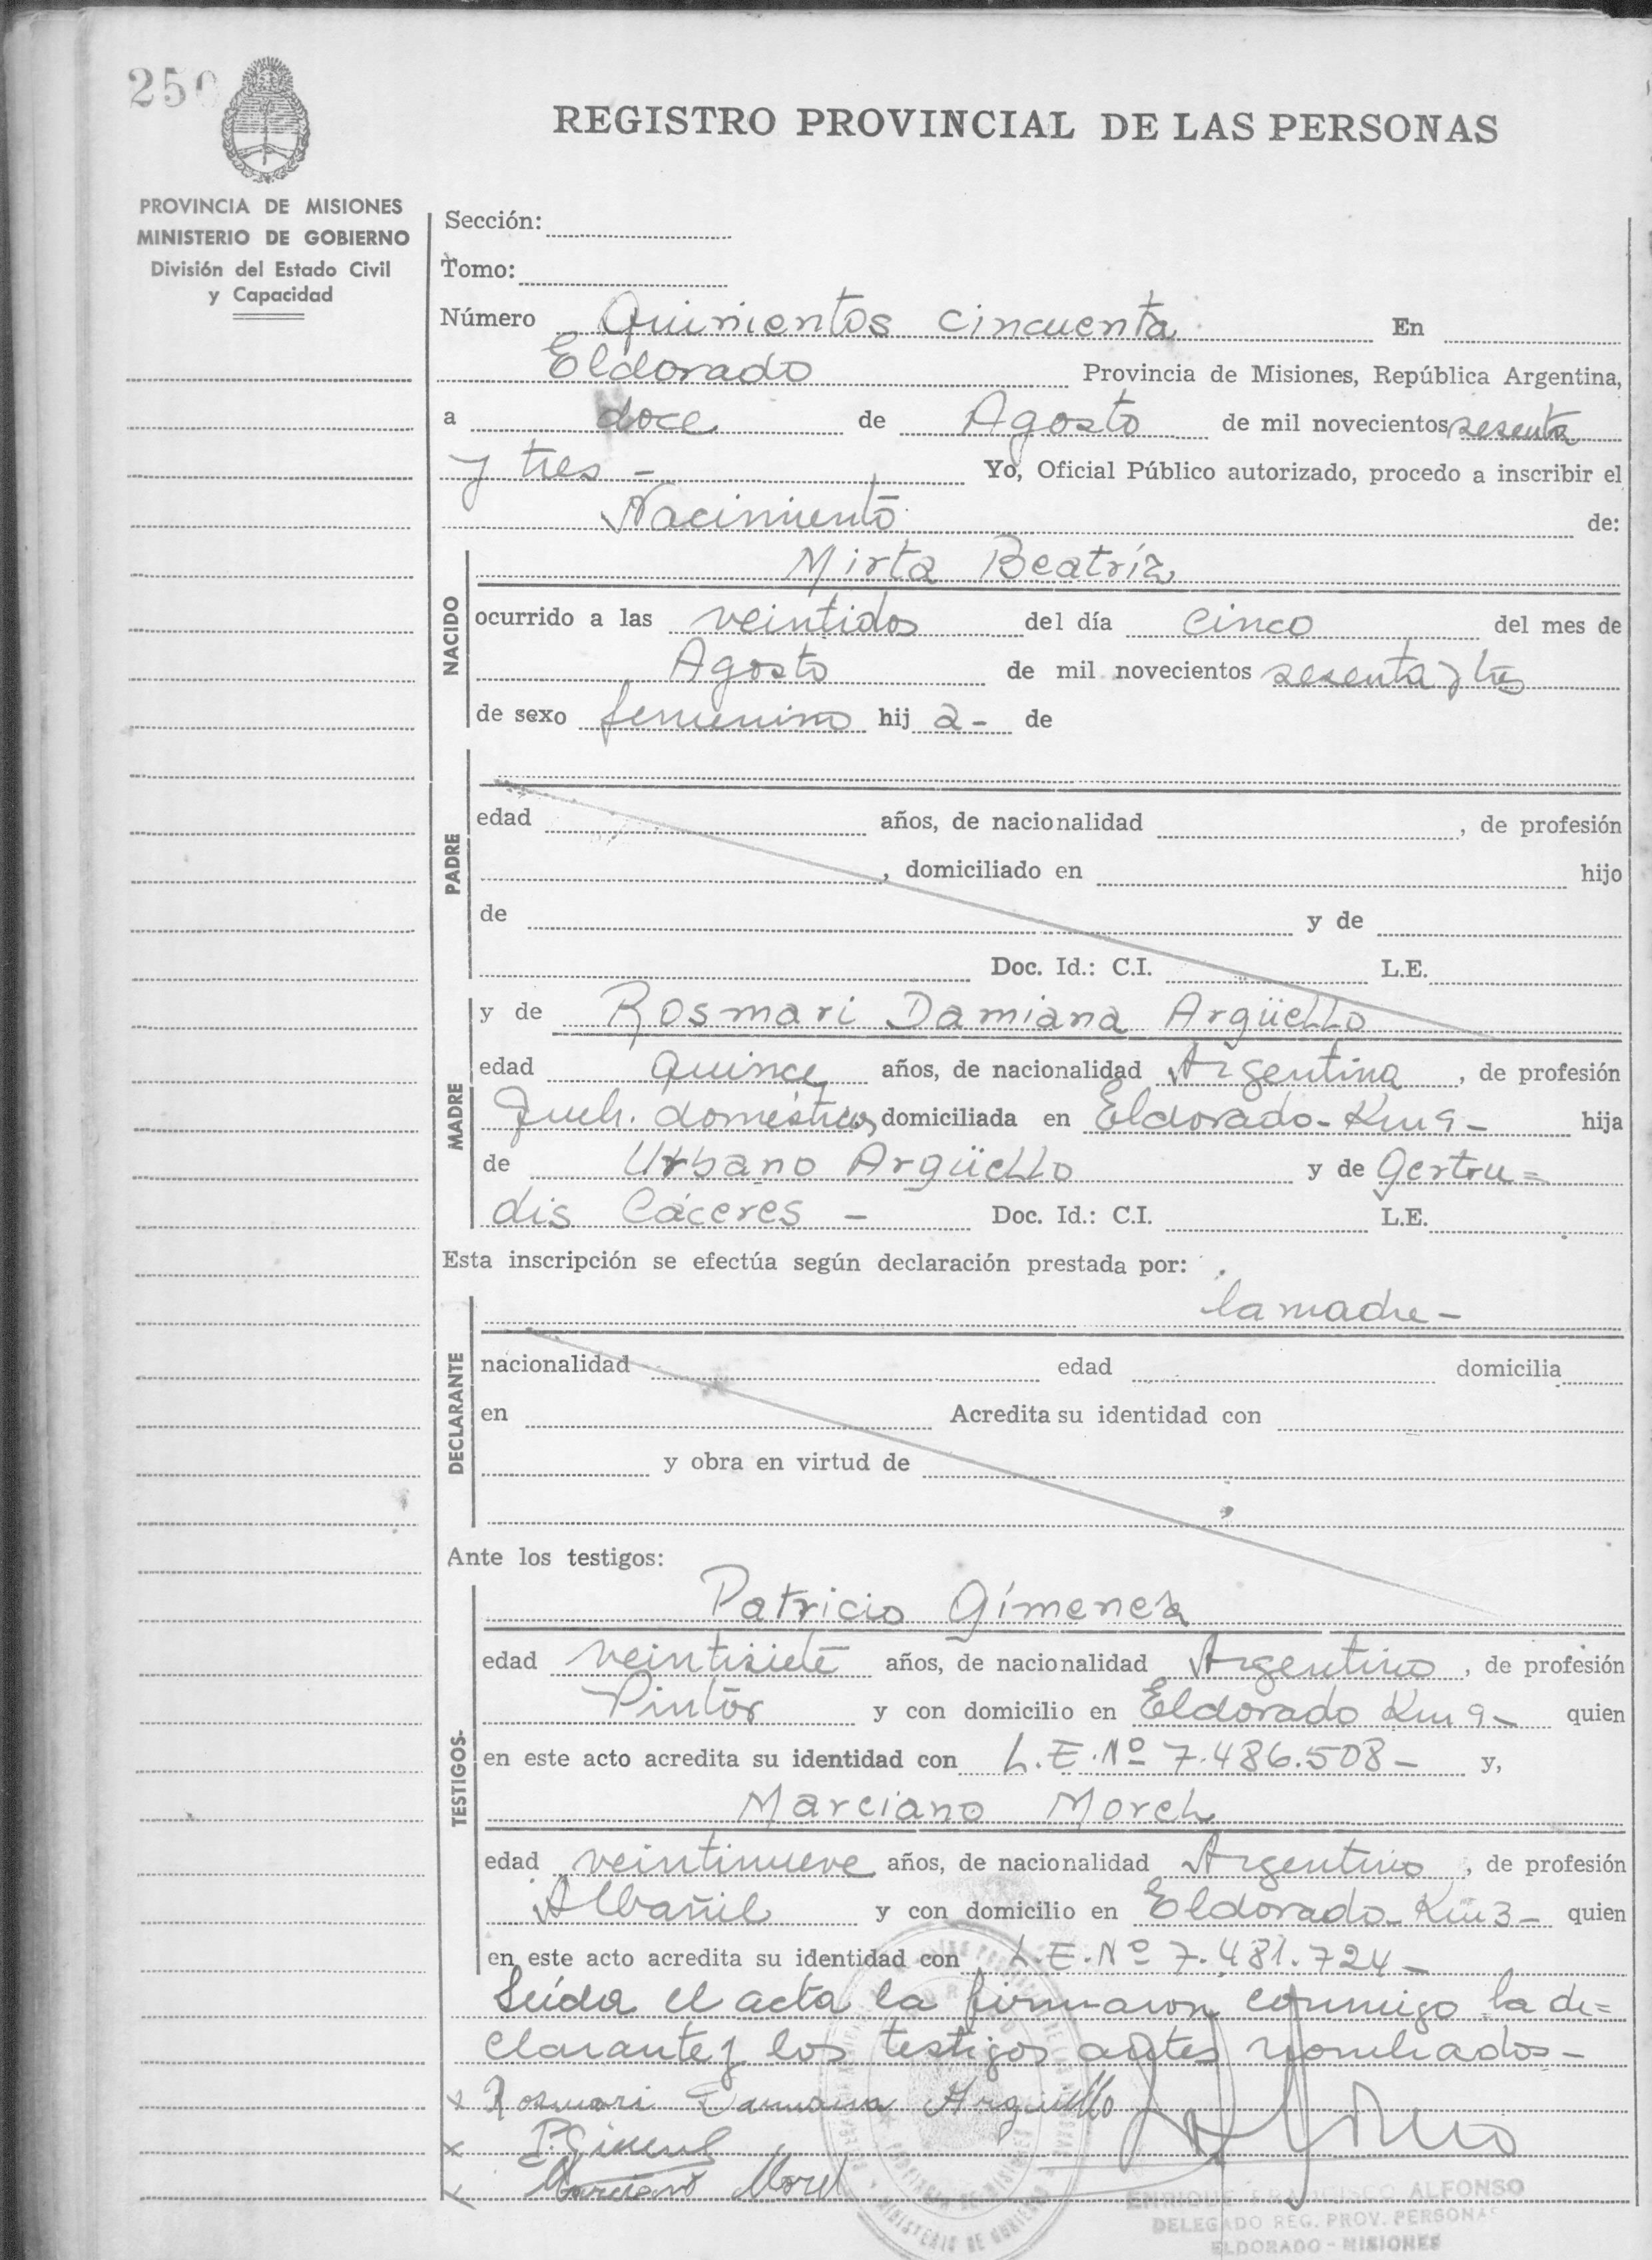 250
REGISTRO PROVINCIAL DE LAS PERSONAS
PROVINCIA DE MISIONES
MINISTERIO DE GOBIERNO
División del Estado Civil
y Capacidad
Sección:
Tomo:
Número Quinientos cincuenta En
Eldorado Provincia de Misiones, República Argentina,
a doce de Agosto de mil novecientos sesenta
y tres - Yo, Oficial Público autorizado, procedo a inscribir el
Nacimiento de:
NACIDO
Mirta Beatríz
ocurrido a las veintidos del día cinco del mes de
Agosto de mil novecientos sesenta y tres
de sexo femenino hij a - de
PADRE
edad años, de nacionalidad , de profesión
, domiciliado en hijo
de y de
Doc. Id.: C.I. L.E.
MADRE
y de Rosmari Damiana Argüello
edad quince años, de nacionalidad Argentina , de profesión
Queh. domésticos domiciliada en Eldorado - Km 9 - hija
de Urbano Argüello y de Gertru=
dis Cáceres - Doc. Id.: C.I. L.E.
Esta inscripción se efectúa según declaración prestada por:
DECLARANTE
la madre -
nacionalidad edad domicilia
en Acredita su identidad con
y obra en virtud de
Ante los testigos:
TESTIGOS-
Patricio Gímenez
edad veintisiete años, de nacionalidad Argentino , de profesión
Pintor y con domicilio en Eldorado Km 9 - quien
en este acto acredita su identidad con L.E.Nº 7.486.508 - y,
Marciano Morel
edad veintinueve años, de nacionalidad Argentino , de profesión
Albañil y con domicilio en Eldorado - Km 3 - quien
en este acto acredita su identidad con L.E.Nº 7.481.724 -
Leída el acta la firmaron conmigo la de=
clarante y los testigos antes nombrados -
x Rosmari Damiana Arguello
x P. Gimenez
x Marciano Morel
ENRIQUE FRANCISCO ALFONSO
DELEGADO REG. PROV. PERSONAS
ELDORADO - MISIONES